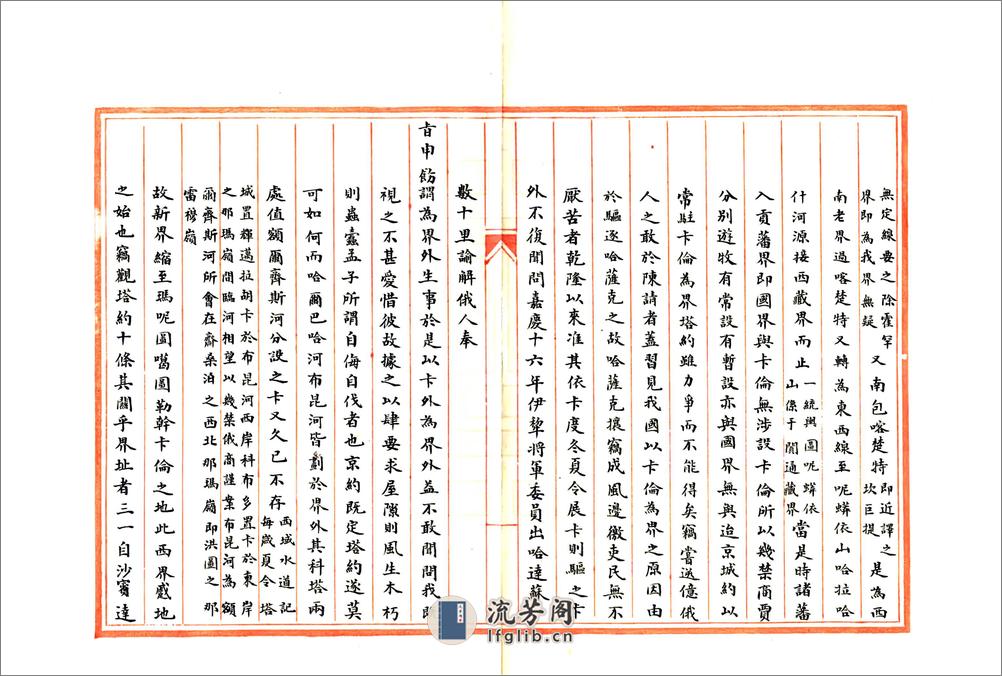 無定線要之除霍罕
界即為我界無疑
又南包喀楚特即近譯之
坎巨提
是為西
南老界過喀楚特又轉為東西線至呢蟒依山哈拉哈
什河源接西藏界而止
一統輿圖呢蟒依
山係于闐通藏界
當是時諸藩
入貢藩界即國界與卡倫無涉設卡倫所以幾禁商賈
分別遊牧有常設有暫設亦與國界無與迨京城約以
常駐卡倫為界塔約雖力爭而不能得矣竊嘗送億俄
人之敢於陳請者蓋習見我國以卡倫為界之原因由
於驅逐哈薩克之故哈薩克攘竊成風邊徼吏民無不
厭苦者乾隆以來准其依卡度冬夏令展卡則驅之卡
外不復聞問嘉慶十六年伊犂將軍委員出哈達蘇
數十里諭解俄人奉
旨申飭謂為界外生事於是以卡外為界外益不敢聞問我既
視之不甚愛惜彼故據之以肆要求屋隙則風生木朽
則蟲蠹孟子所謂自侮自伐者也京約既定塔約遂莫
可如何而哈爾巴哈河布昆河皆劃於界外其科塔兩
處值額爾齊斯河分設之卡又久已不存
西域水道記
每歲夏令塔
城置輝邁拉胡卡於布昆河西岸科布多置卡於東岸
之那瑪嶺間臨河相望以幾禁俄商謹案布昆河為額
爾齊斯河所會在齋桑泊之西北那瑪嶺即洪圖之那
雷穆嶺
故新界縮至瑪呢圖噶圖勒幹卡倫之地此西界蹙地
之始也竊觀塔約十條其關乎界址者三一自沙賓達
流芳阁
lfglib.cn